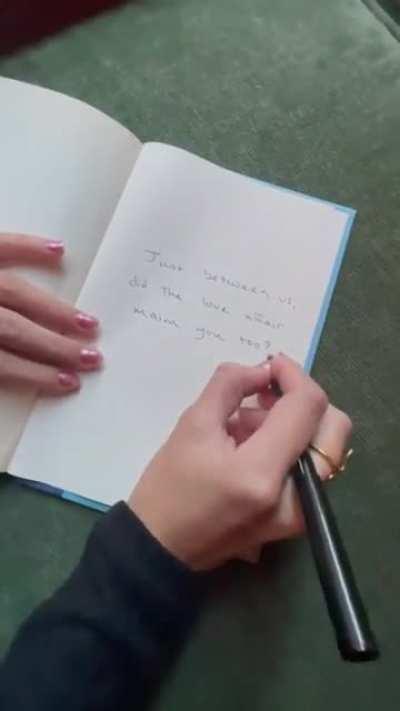 Just between us,
did the love affair
maim you too?